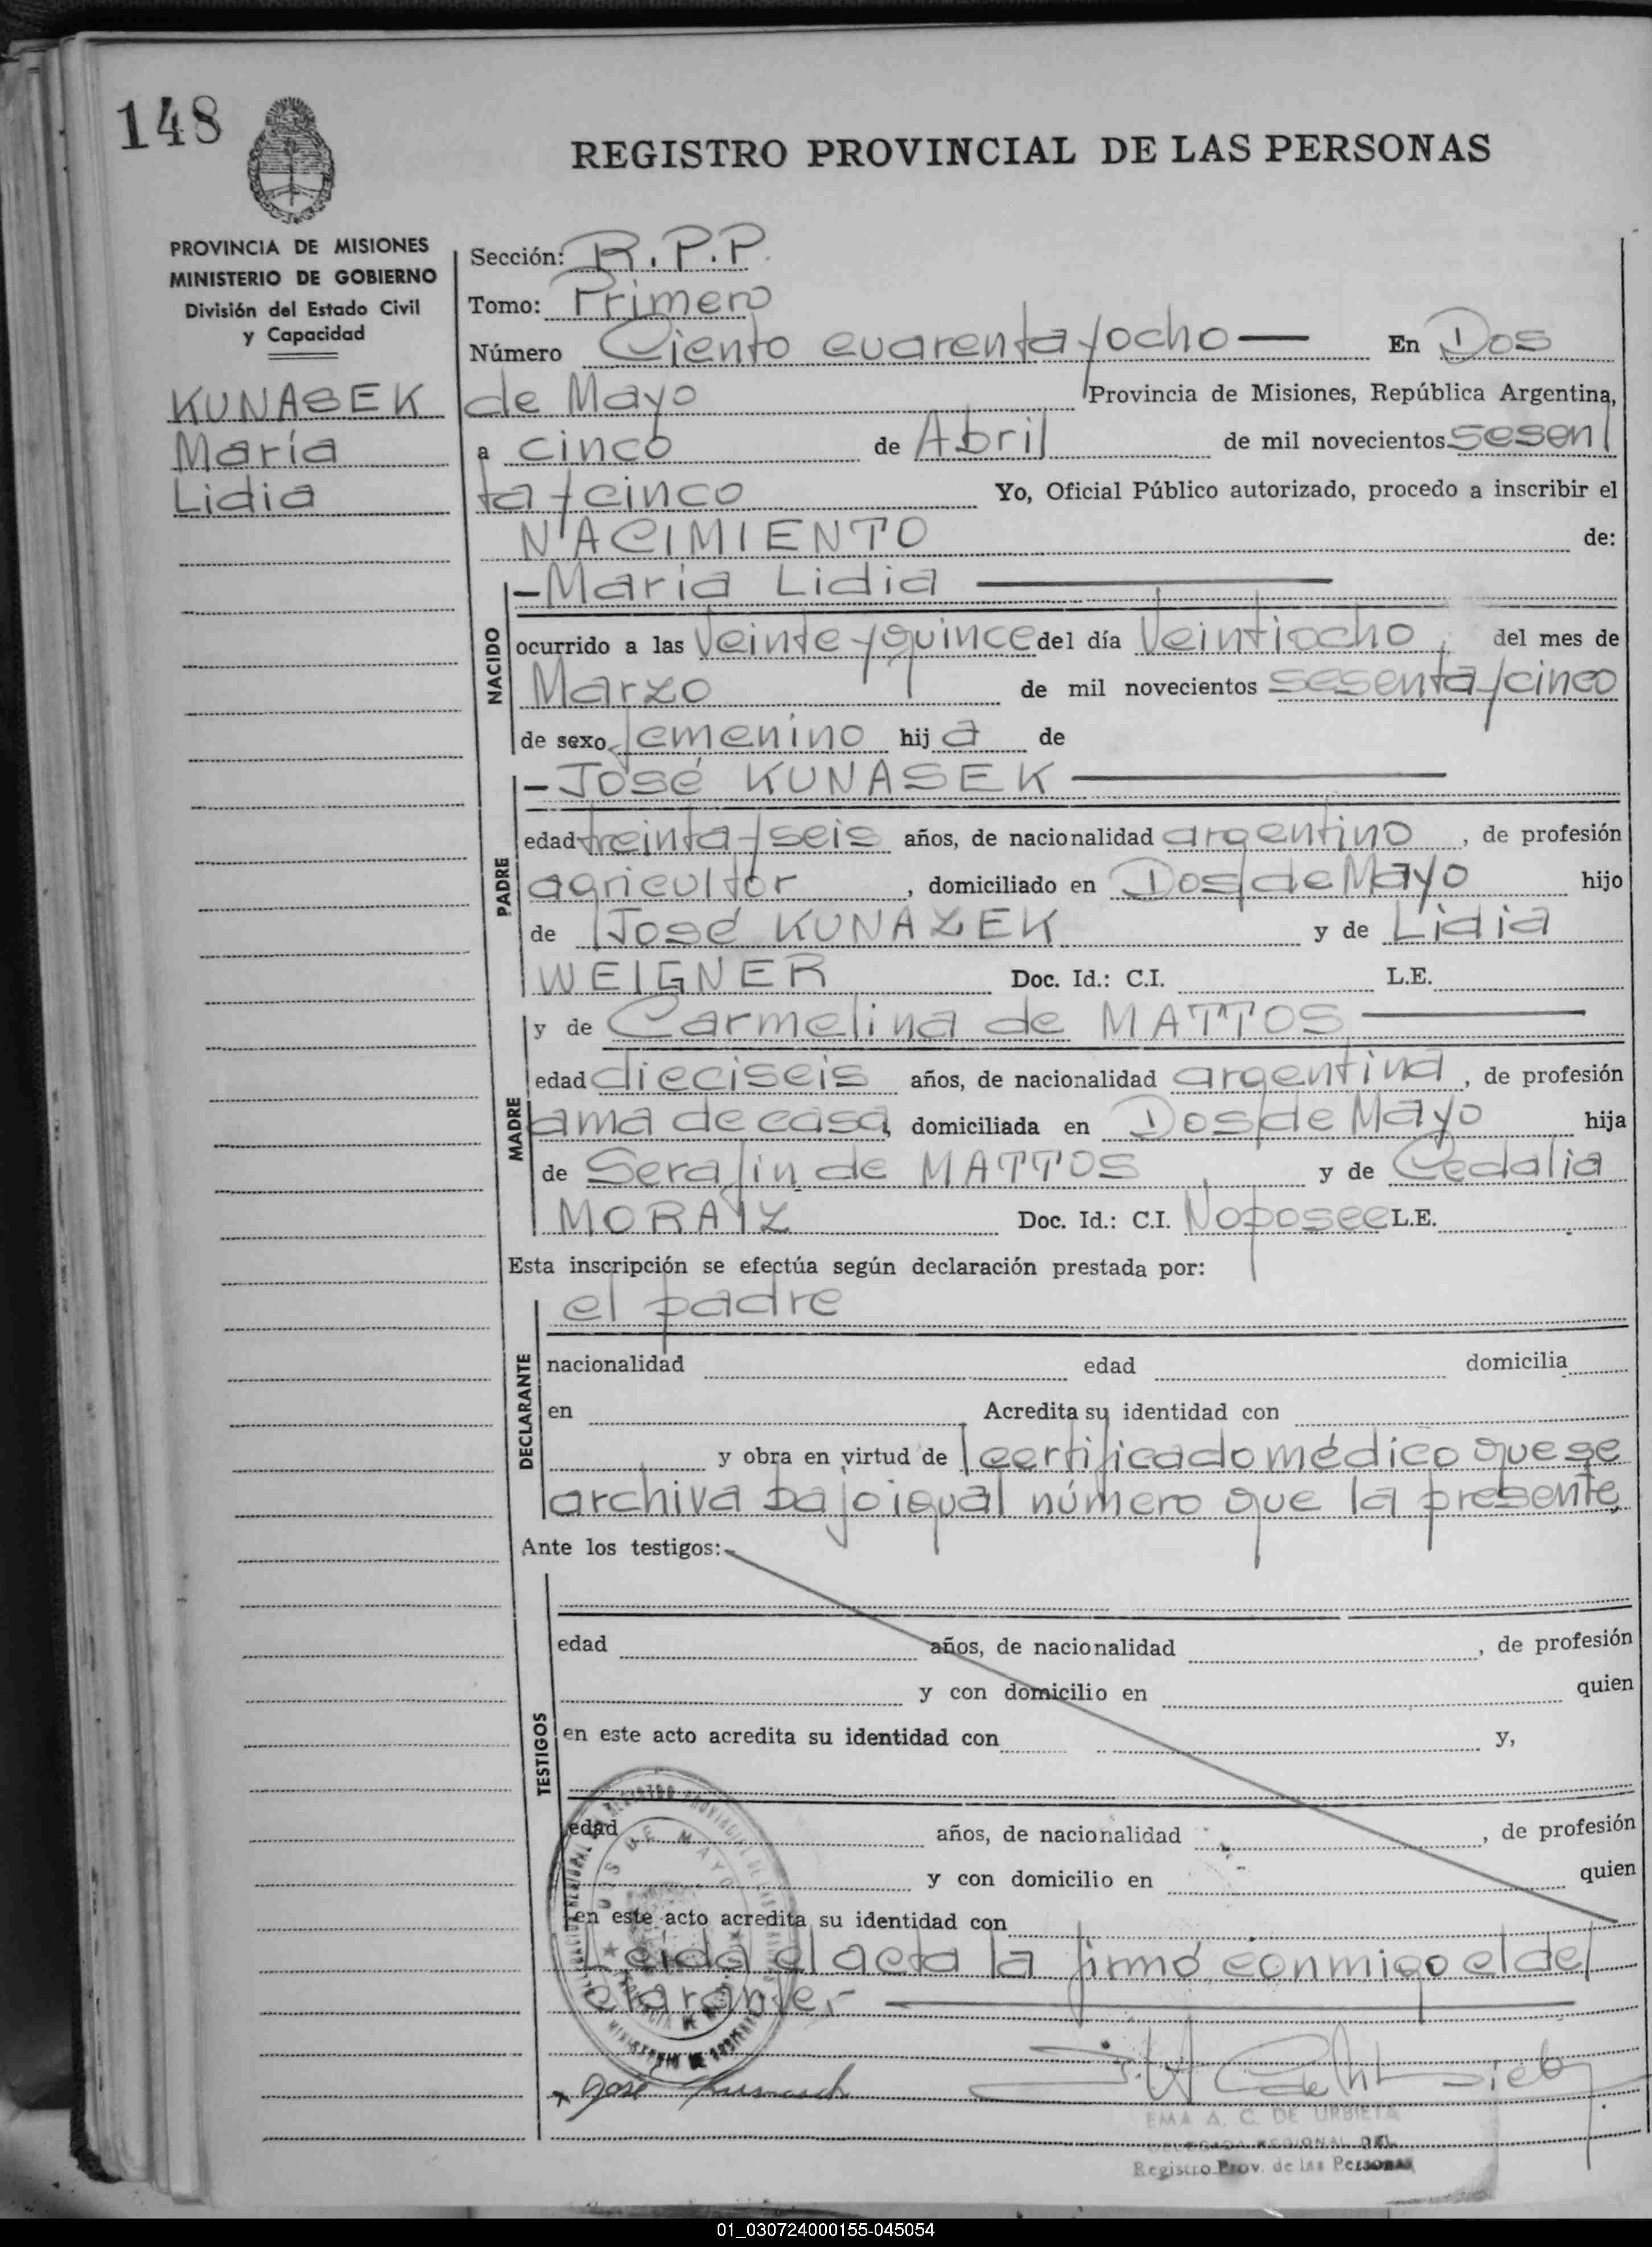 148
REGISTRO PROVINCIAL DE LAS PERSONAS
PROVINCIA DE MISIONES
MINISTERIO DE GOBIERNO
División del Estado Civil
y Capacidad
KUNASEK
María
Lidia
Sección: R.P.P.
Tomo: Primero
Número Ciento cuarenta y ocho — En Dos
de Mayo Provincia de Misiones, República Argentina,
a cinco de Abril de mil novecientos sesen
ta y cinco Yo, Oficial Público autorizado, procedo a inscribir el
NACIMIENTO de:
NACIDO
- María Lidia —
ocurrido a las veinte y quince del día veintiocho, del mes de
Marzo de mil novecientos sesenta y cinco
de sexo femenino hij a de
PADRE
- José KUNASEK —
edad treinta y seis años, de nacionalidad argentino, de profesión
agricultor, domiciliado en Dos de Mayo hijo
de José KUNAZEK y de Lidia
WEIGNER Doc. Id.: C.I. L.E.
MADRE
y de Carmelina de MATTOS —
edad dieciseis años, de nacionalidad argentina, de profesión
ama de casa, domiciliada en Dos de Mayo hija
de Serafin de MATTOS y de Cedalia
MORAIZ Doc. Id.: C.I. No posee L.E.
Esta inscripción se efectúa según declaración prestada por:
DECLARANTE
el padre
nacionalidad edad domicilia
en Acredita su identidad con
y obra en virtud de certificado médico que se
archiva bajo igual número que la presente,
Ante los testigos:
TESTIGOS
edad años, de nacionalidad , de profesión
y con domicilio en quien
en este acto acredita su identidad con y,
edad años, de nacionalidad , de profesión
y con domicilio en quien
en este acto acredita su identidad con
Leida el acta la firmó conmigo el de
clarante.-
DOS DE MAYO
José
EMA A. C. DE URBIETA
DELEGADA REGIONAL DEL
Registro Prov. de las Personas
01_030724000155-045054